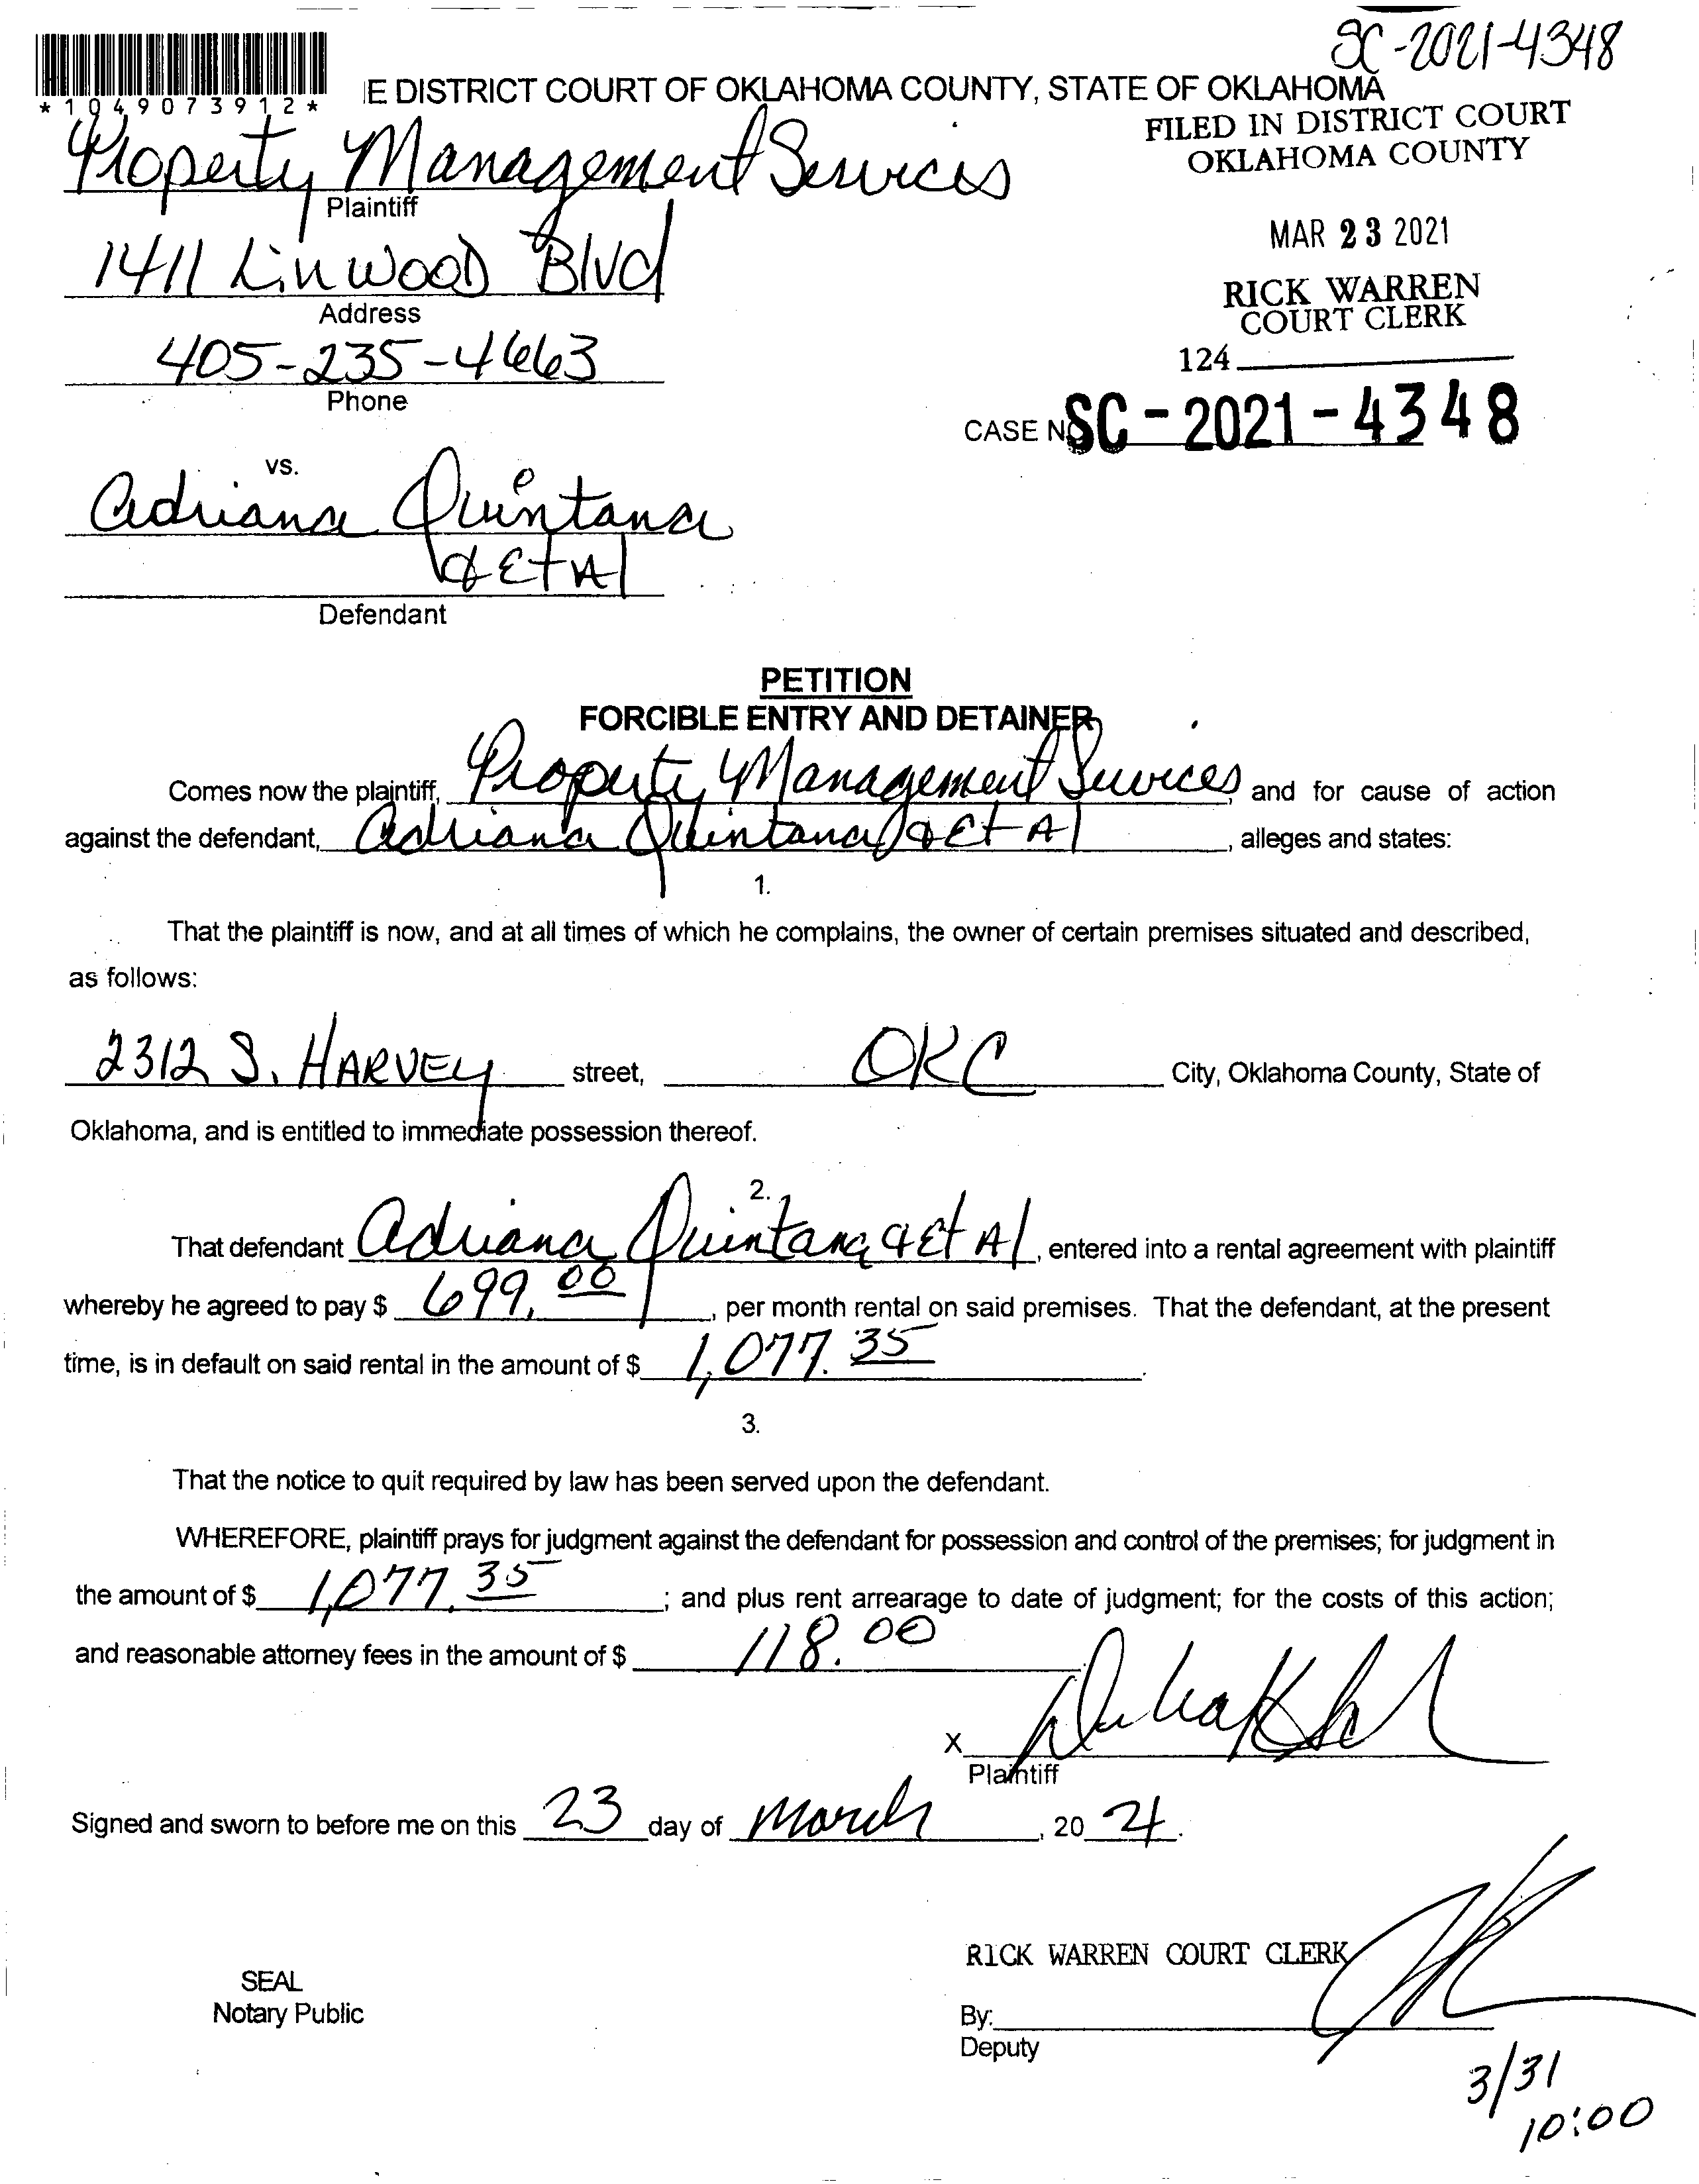 SC-2021-4348
*1049073912*
E DISTRICT COURT OF OKLAHOMA COUNTY, STATE OF OKLAHOMA
FILED IN DISTRICT COURT
OKLAHOMA COUNTY
Property Management Services
Plaintiff
MAR 23 2021
1411 Linwood Blvd
Address
RICK WARREN
COURT CLERK
405-235-4663
Phone
124
CASE NO SC-2021-4348
vs.
Adriana Quintana
& Et Al
Defendant
PETITION
FORCIBLE ENTRY AND DETAINER
Comes now the plaintiff, Property Management Services, and for cause of action
against the defendant, Adriana Quintana & Et Al, alleges and states:
1.
That the plaintiff is now, and at all times of which he complains, the owner of certain premises situated and described,
as follows:
2312 S. HARVEY street, OKC City, Oklahoma County, State of
Oklahoma, and is entitled to immediate possession thereof.
2.
That defendant Adriana Quintana & Et Al, entered into a rental agreement with plaintiff
whereby he agreed to pay $ 699.00, per month rental on said premises. That the defendant, at the present
time, is in default on said rental in the amount of $ 1,077.35.
3.
That the notice to quit required by law has been served upon the defendant.
WHEREFORE, plaintiff prays for judgment against the defendant for possession and control of the premises; for judgment in
the amount of $ 1,077.35; and plus rent arrearage to date of judgment; for the costs of this action;
and reasonable attorney fees in the amount of $ 118.00.
X
Plaintiff
Signed and sworn to before me on this 23 day of March, 20 21.
RICK WARREN COURT CLERK
SEAL
Notary Public
By:
Deputy
3/31
10:00